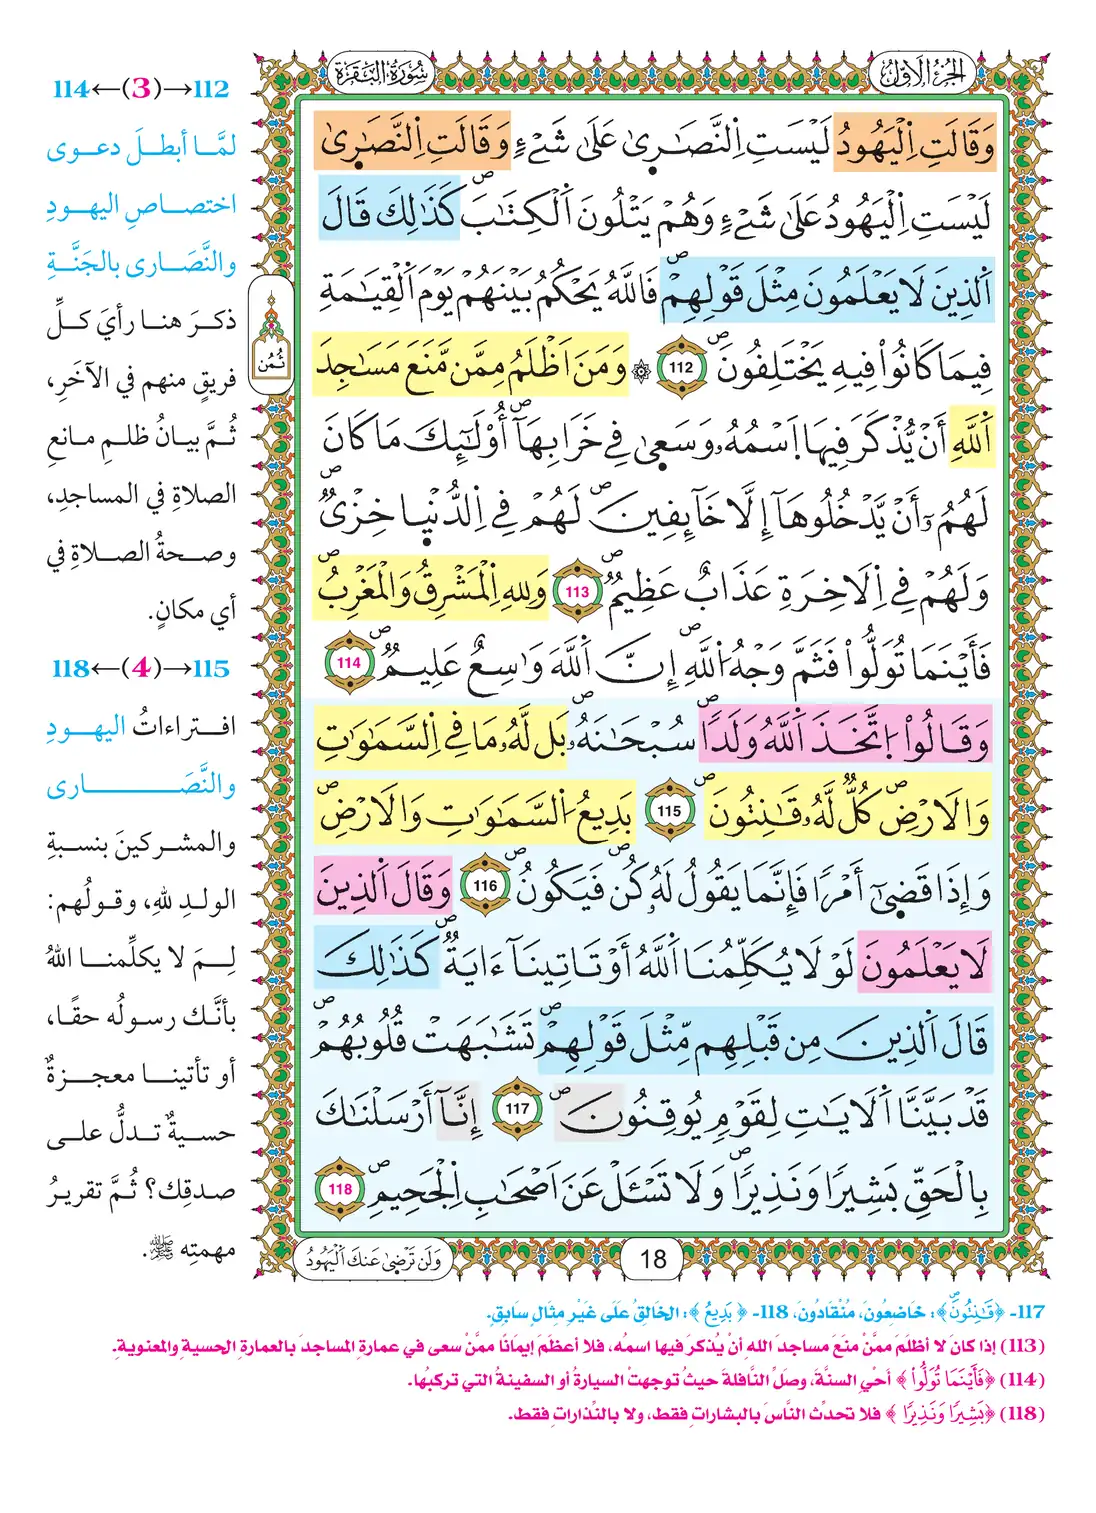 الجُزْءُ الأَوَّلُ
سُورَةُ البَقَرَةِ
وَقَالَتِ اِلْيَهُودُ لَيْسَتِ اِلنَّصَٰرِىٰ عَلَىٰ شَےْءٖ وَقَالَتِ اِلنَّصَٰرِىٰ
لَيْسَتِ اِلْيَهُودُ عَلَىٰ شَےْءٖ وَهُمْ يَتْلُونَ اَلْكِتَٰبَۖ كَذَٰلِكَ قَالَ
اَلذِينَ لَا يَعْلَمُونَ مِثْلَ قَوْلِهِمْۖ فَاللَّهُ يَحْكُمُ بَيْنَهُمْ يَوْمَ اَلْقِيَٰمَةِ
فِيمَا كَانُواْ فِيهِ يَخْتَلِفُونَۖ 112 ۞ وَمَنَ اَظْلَمُ مِمَّن مَّنَعَ مَسَٰجِدَ
اَللَّهِ أَنْ يُّذْكَرَ فِيهَا اَسْمُهُۥ وَسَعىٰ فِے خَرَابِهَآۖ أُوْلَٰٓئِكَ مَا كَانَ
لَهُمُۥٓ أَنْ يَّدْخُلُوهَآ إِلَّا خَآئِفِينَۖ لَهُمْ فِے اِلدُّنْي۪ا خِزْىٞۖ
وَلَهُمْ فِے اِلَاخِرَةِ عَذَابٌ عَظِيمٞۖ 113 وَلِلهِ اِلْمَشْرِقُ وَالْمَغْرِبُۖ
فَأَيْنَمَا تُوَلُّواْ فَثَمَّ وَجْهُ اُللَّهِۖ إِنَّ اَللَّهَ وَٰسِعٌ عَلِيمٞۖ 114
وَقَالُواْ اُ۪تَّخَذَ اَللَّهُ وَلَدٗاۖ سُبْحَٰنَهُۥۖ بَل لَّهُۥ مَا فِے اِلسَّمَٰوَٰتِ
وَالَارْضِۖ كُلّٞ لَّهُۥ قَٰنِتُونَۖ 115 بَدِيعُ اُلسَّمَٰوَٰتِ وَالَارْضِۖ
وَإِذَا قَضىٰٓ أَمْرٗا فَإِنَّمَا يَقُولُ لَهُۥ كُنۖ فَيَكُونُۖ 116 وَقَالَ اَلذِينَ
لَا يَعْلَمُونَ لَوْ لَا يُكَلِّمُنَا اَللَّهُ أَوْ تَاتِينَآ ءَايَةٞۖ كَذَٰلِكَ
قَالَ اَلذِينَ مِن قَبْلِهِم مِّثْلَ قَوْلِهِمْۖ تَشَٰبَهَتْ قُلُوبُهُمْۖ
قَدْ بَيَّنَّا اَلَايَٰتِ لِقَوْمٖ يُوقِنُونَۖ 117 إِنَّآ أَرْسَلْنَٰكَ
بِالْحَقِّ بَشِيرٗا وَنَذِيرٗاۖ وَلَا تَسْـَٔلْ عَنَ اَصْحَٰبِ اِلْجَحِيمِۖ 118
ثُمُن
18
وَلَن تَرْضىٰ عَنكَ اَلْيَهُودُ
112→(3)←114
لمَّا أبطلَ دعوى
اختصاصِ اليهودِ
والنَّصَارى بالجَنَّةِ
ذكرَ هنا رأيَ كلِّ
فريقٍ منهم في الآخَرِ،
ثُمَّ بيانُ ظلمِ مانعِ
الصلاةِ في المساجدِ،
وصحةُ الصلاةِ في
أي مكانٍ.
115→(4)←118
افتراءاتُ اليهودِ
والنَّصَارى
والمشركينَ بنسبةِ
الولدِ للهِ، وقولُهم:
لِمَ لا يكلِّمنا اللهُ
بأنَّك رسولُه حقًا،
أو تأتينا معجزةٌ
حسيةٌ تدلُّ على
صدقِك؟ ثُمَّ تقريرُ
مهمتِه ﷺ.
117- ﴿قَٰنِتُونَۖ﴾: خَاضِعُونَ، مُنْقَادُونَ، 118- ﴿بَدِيعُ﴾: الخَالِقُ عَلَى غَيْرِ مِثَالٍ سَابِقٍ.
(113) إذا كانَ لا أظلمَ ممَّنْ منَعَ مساجدَ الله أنْ يُذكرَ فيها اسمُه، فلا أعظَمَ إيمَانًا ممَّنْ سعى في عمارةِ المساجدَ بالعمارةِ الحسيةِ والمعنويةِ.
(114) ﴿فَأَيْنَمَا تُوَلُّواْ﴾ أحْيِ السنَّةَ، وصَلِّ النَّافلةَ حيثُ توجهتْ السيارةُ أو السفينةُ التي تركبُها.
(118) ﴿بَشِيرًا وَنَذِيرًا﴾ فلا تحدِّث النَّاسَ بالبشاراتِ فقط، ولا بالنِّذاراتِ فقط.